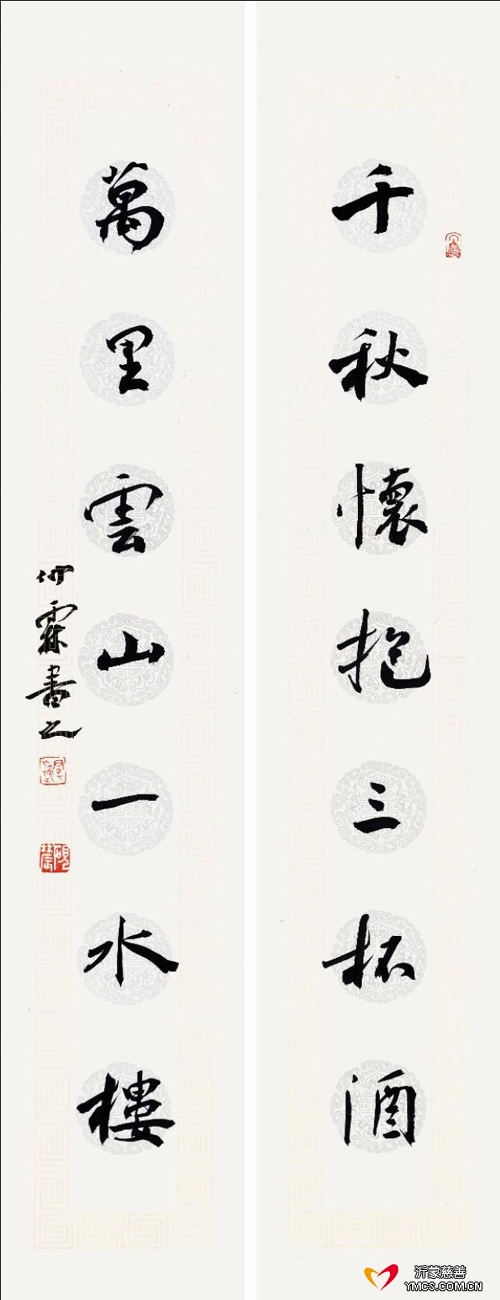 千秋懷抱三杯酒
萬里雲山一水樓
霖書之
沂蒙慈善
YMCS.COM.CN